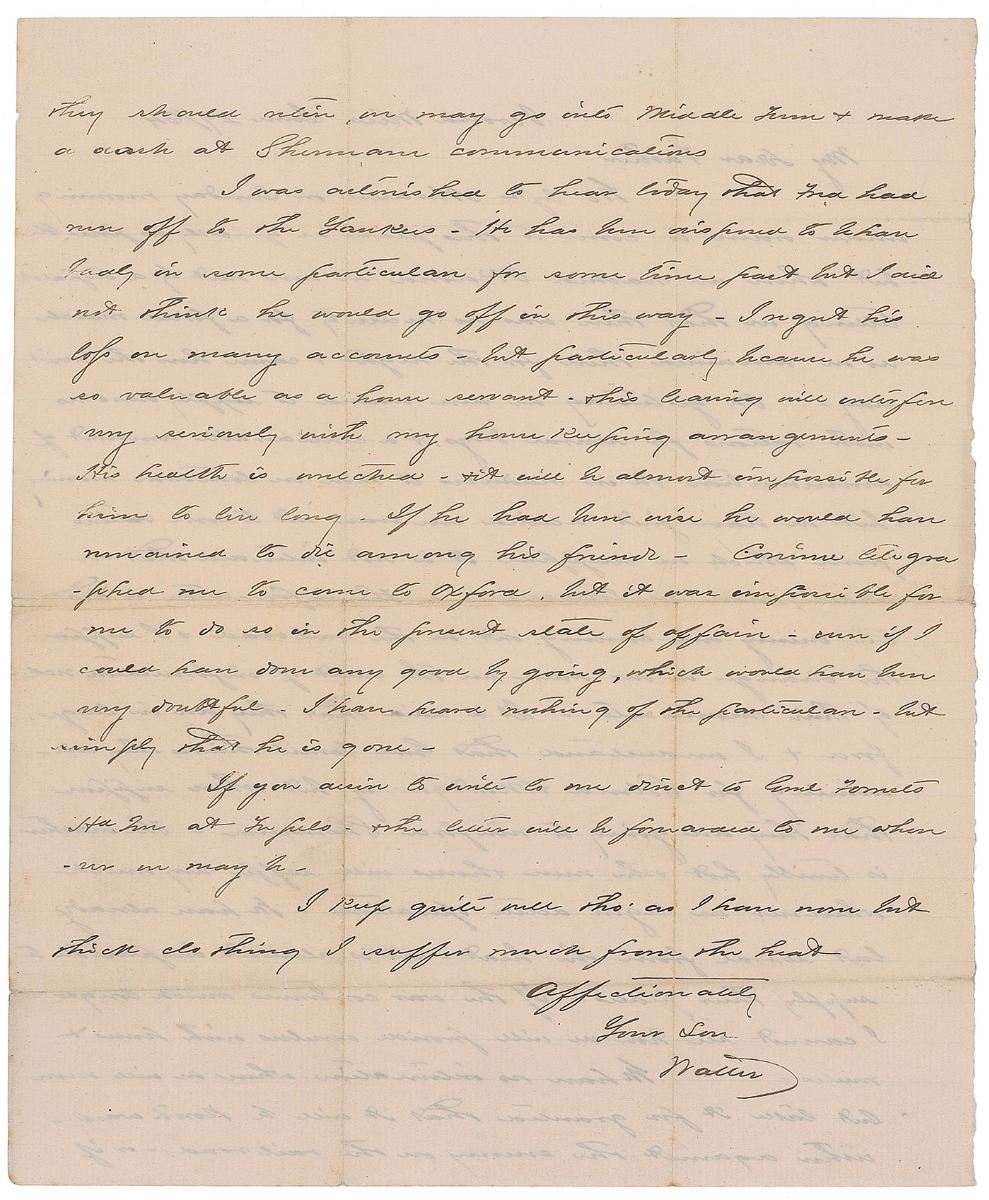 they should retire, we may go into Middle Tenn & make
a dash at Shermans communications
I was astonished to hear today that Fred had
run off to the Yankees - He has been disposed to behave
badly in some particulars for some time past but I did
not think he would go off in this way - I regret his
loss on many accounts - but particularly because he was
so valuable as a house servant - & his leaving will interfere
very seriously with my house keeping arrangements -
His health is wretched - & it will be almost impossible for
him to live long - If he had been wise he would have
remained to die among his friends - Corinne telegra
-phed me to come to Oxford, but it was impossible for
me to do so in the present state of affairs - even if I
could have done any good by going, which would have been
very doubtful - I have heard nothing of the particulars - but
simply that he is gone -
If you desire to write to me direct to Genl Forrests
Hd Qrs at Tupelo - & the letter will be forwarded to me when
-ever we may be -
I keep quite well tho' as I have none but
thick clothing I suffer much from the heat
Affectionately
Your Son
Walter